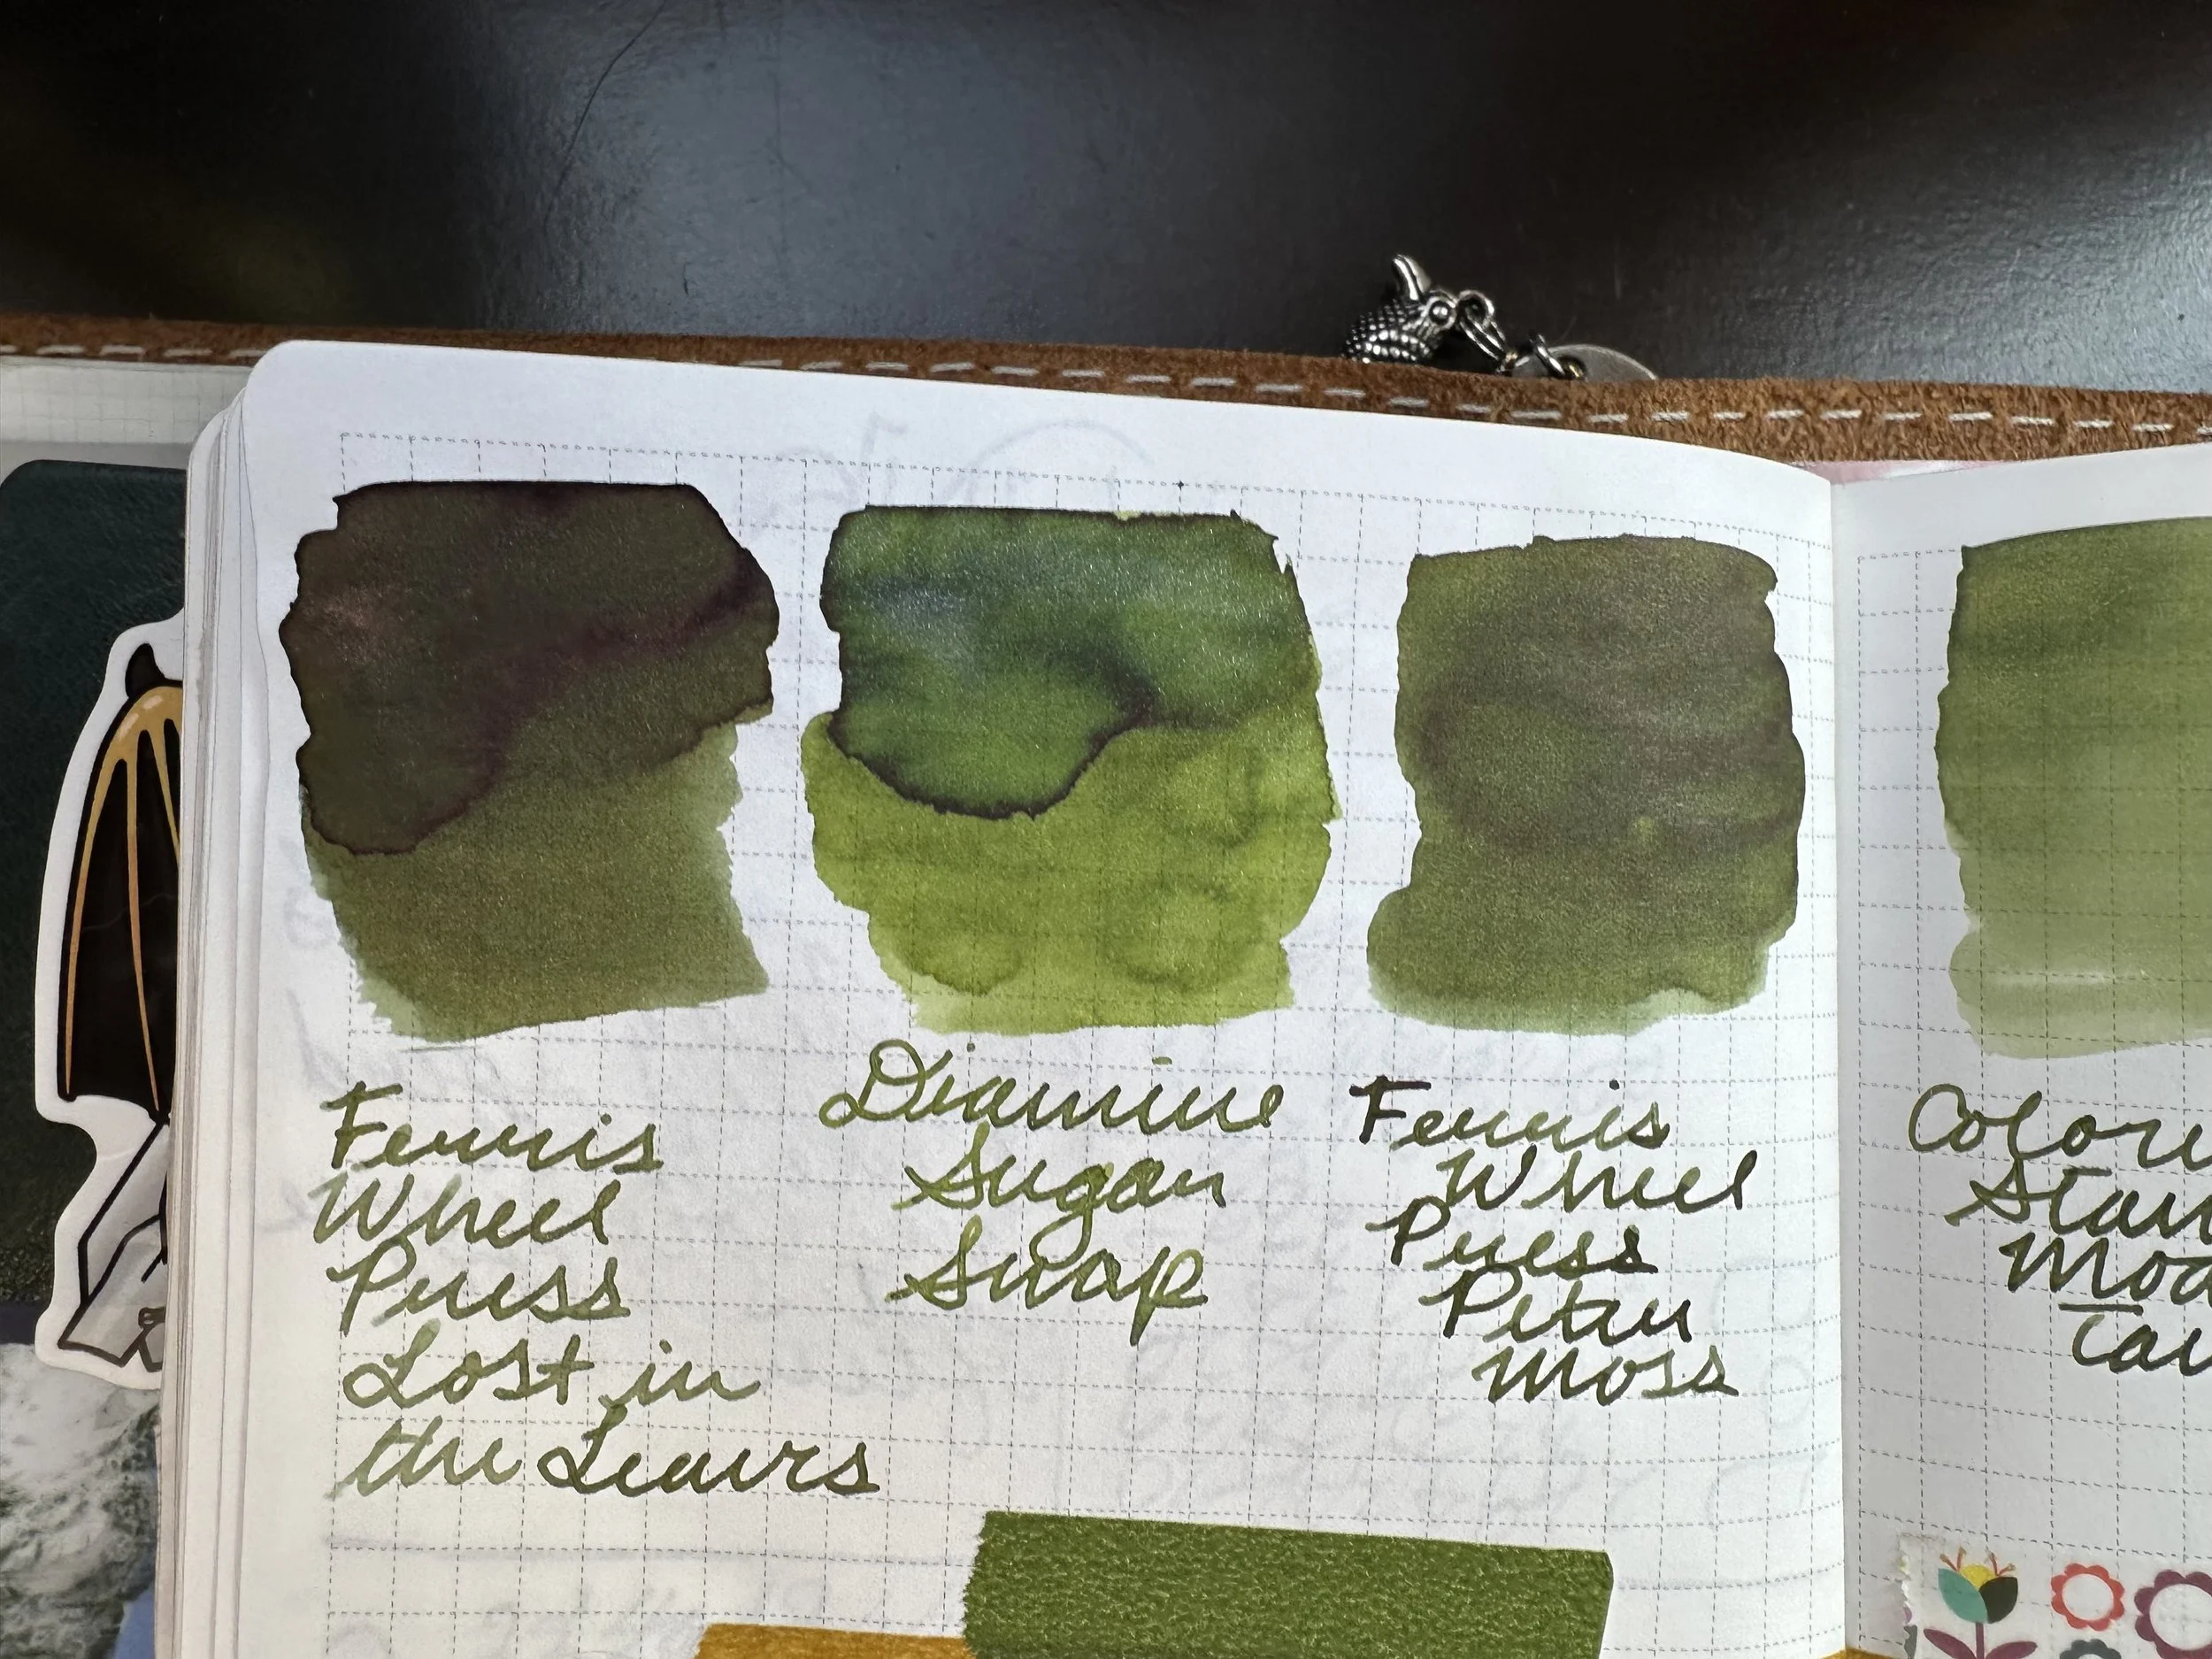 Ferris
Wheel
Press
Lost in
the Leaves
Diamine
Sugar
Snap
Ferris
Wheel
Press
Peter
Moss